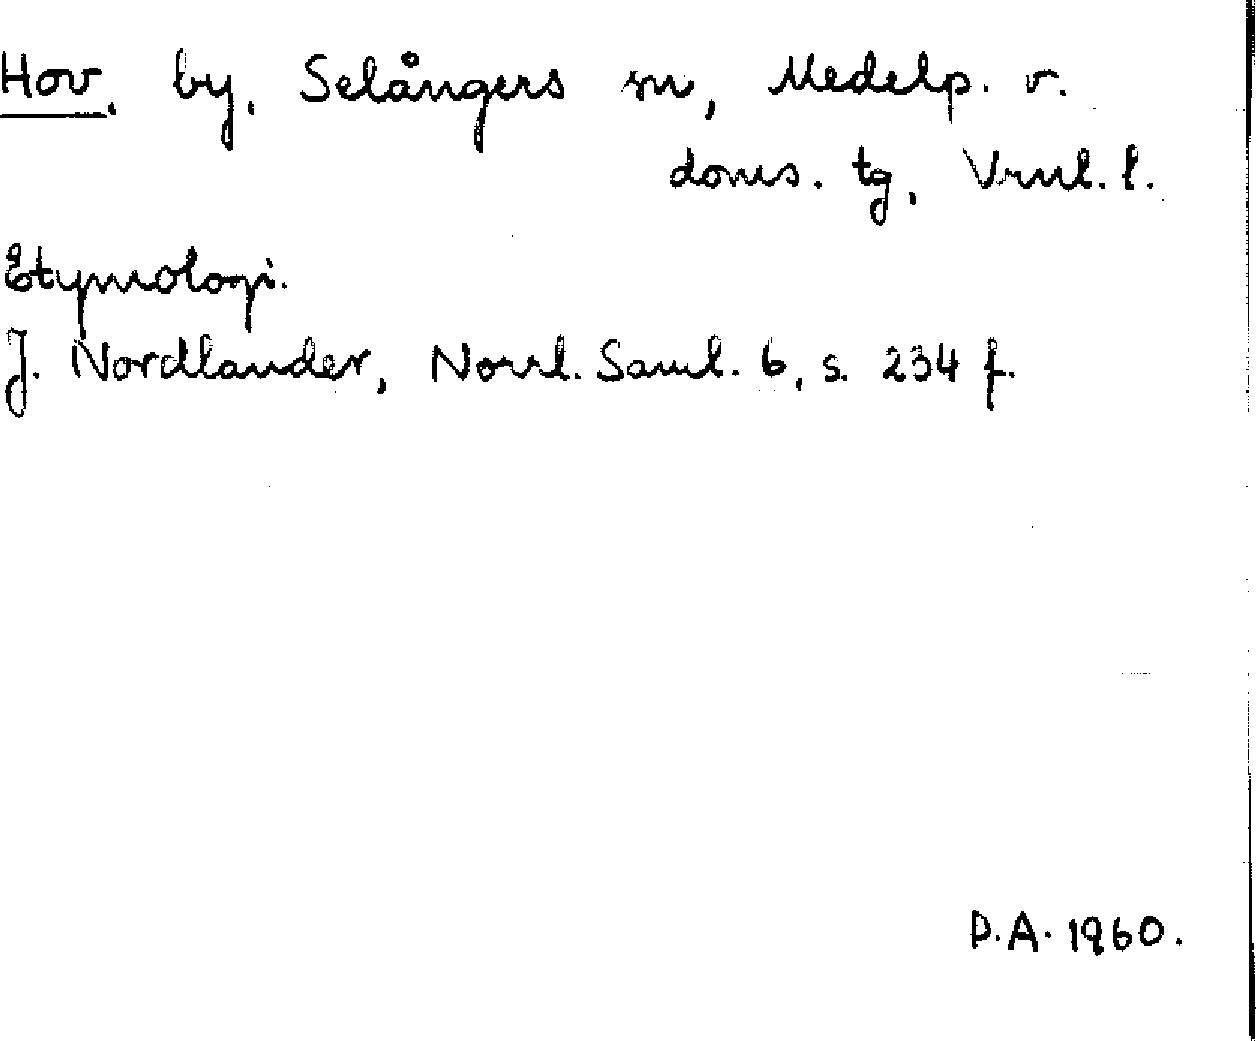 Hov, by, Selångers sn, Medelp. v.
doms. tg, Vrnl. l.
Etymologi.
J. Nordlander, Norrl. Saml. 6, s. 234 f.
D.A. 1960.